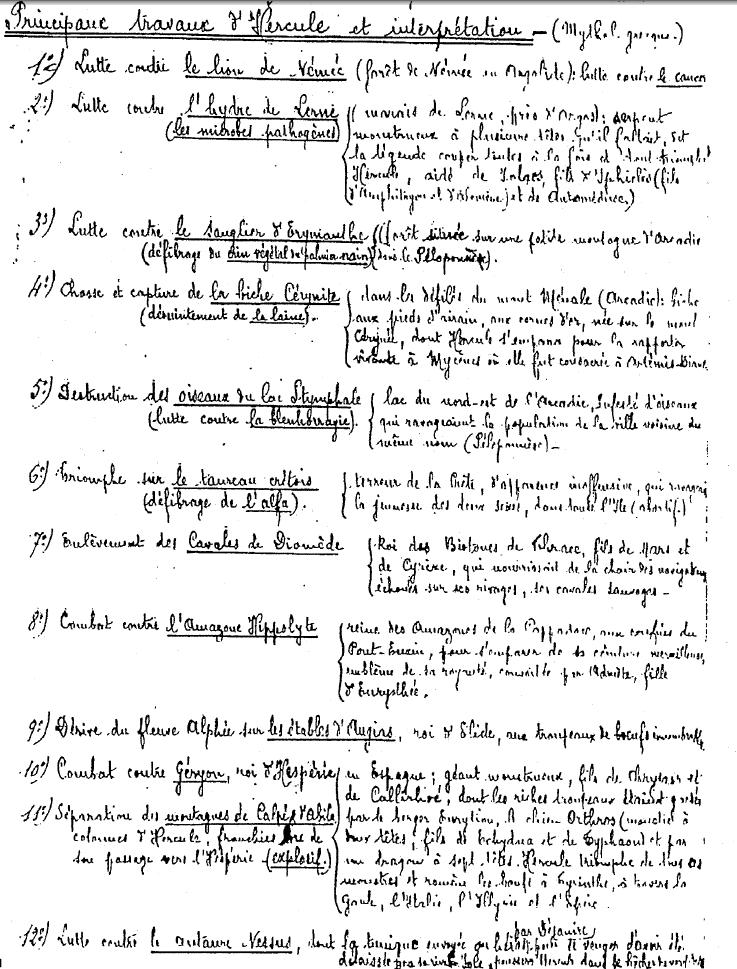 Principaux travaux d'Hercule et interprétation – (Mythol. grecque.)
1º) Lutte contre le lion de Némée (forêt de Némée en Argolide): lutte contre le cancer
2º) Lutte contre l'hydre de Lerne
(les microbes pathogènes)
(marais de Lerne, près d'Argos): serpent
monstrueux à plusieurs têtes qu'il fallait, dit
la légende couper toutes à la fois et dont triompha
Hercule, aidé de Iolaos, fils d'Iphiclès (fils
d'Amphitryon et d'Alcmène) et de Automéduse.)
3º) Lutte contre le sanglier d'Erymanthe
(défibrage du crin végétal du palmier nain)
(forêt située sur une petite montagne d'Arcadie
dans le Péloponnèse).
4º) Chasse et capture de la biche Cérynite
(désuintement de la laine).
dans les défilés du mont Ménale (Arcadie): biche
aux pieds d'airain, aux cornes d'or, née sur le mont
Cérynée, dont Hercule s'empara pour la rapporter
vivante à Mycènes où elle fut consacrée à Artémis-Diane
5º) Destruction des oiseaux du lac Stymphale
(lutte contre la blennorragie).
lac du nord-est de l'Arcadie, infesté d'oiseaux
qui ravageaient la population de la ville voisine du
même nom (Péloponnèse) –
6º) Triomphe sur le taureau crétois
(défibrage de l'alfa).
terreur de la Crète, d'apparence inoffensive, qui
la jeunesse des deux sexes, dans toute l'île
7º) Enlèvement des Cavales de Diomède
Roi des Bistones de Thrace, fils de Mars et
de Cyrène, qui nourrissait de la chair des navigateurs
échoués sur ses rivages, ses cavales sauvages –
8º) Combat contre l'Amazone Hippolyte
reine des Amazones de la Cappadoce, aux confins du
Pont-Euxin, pour s'emparer de sa ceinture merveilleuse,
emblème de sa royauté, convoitée par Admète, fille
d'Eurysthée.
9º) Dérive du fleuve Alphée sur les étables d'Augias, roi d'Elide, aux troupeaux de boeufs innombrables
10º) Combat contre Géryon, roi d'Hespérie
11º) Séparation des montagnes de Calpé d'Abila
colonnes d'Hercule, franchies lors de
son passage vers l'Hespérie (explosif.)
en Espagne; géant monstrueux, fils de Chrysaor et
de Callirhoé, dont les riches troupeaux étaient gardés
par le berger Eurytion, le chien Orthros (molosse à
deux têtes, fils de Echydna et de Typhaon) et par
un dragon à sept têtes. Hercule triomphe de tous ces
monstres et ramène les boeufs à Tyrinthe, à travers la
Gaule, l'Italie, l'Illyrie et l'Epire.
12º) Lutte contre le centaure Nessus, dont la tunique envoyée par Déjanire